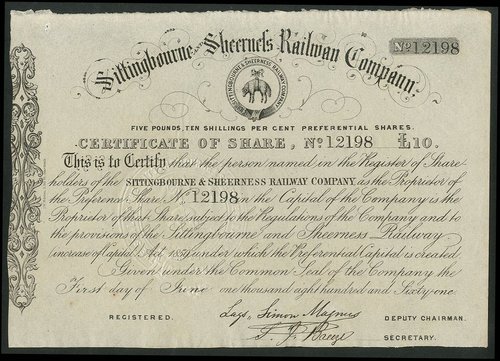 Sittingbourne and Sheerness Railway Company.
No 12198
SITTINGBOURNE & SHEERNESS RAILWAY COMPANY
FIVE POUNDS, TEN SHILLINGS PER CENT PREFERENTIAL SHARES.
CERTIFICATE OF SHARE, No 12198 £10.
This is to Certify that the person named in the Register of Share-
holders of the SITTINGBOURNE & SHEERNESS RAILWAY COMPANY, as the Proprietor of
the Preference Share No 12198 in the Capital of the Company is the
Proprietor of that Share, subject to the Regulations of the Company and to
the provisions of the Sittingbourne and Sheerness Railway
(increase of Capital) Act, under which the Preferential Capital is created
Given under the Common Seal of the Company the
First day of June one thousand eight hundred and Sixty-one
REGISTERED.
Simon Magnus DEPUTY CHAIRMAN.
SECRETARY.